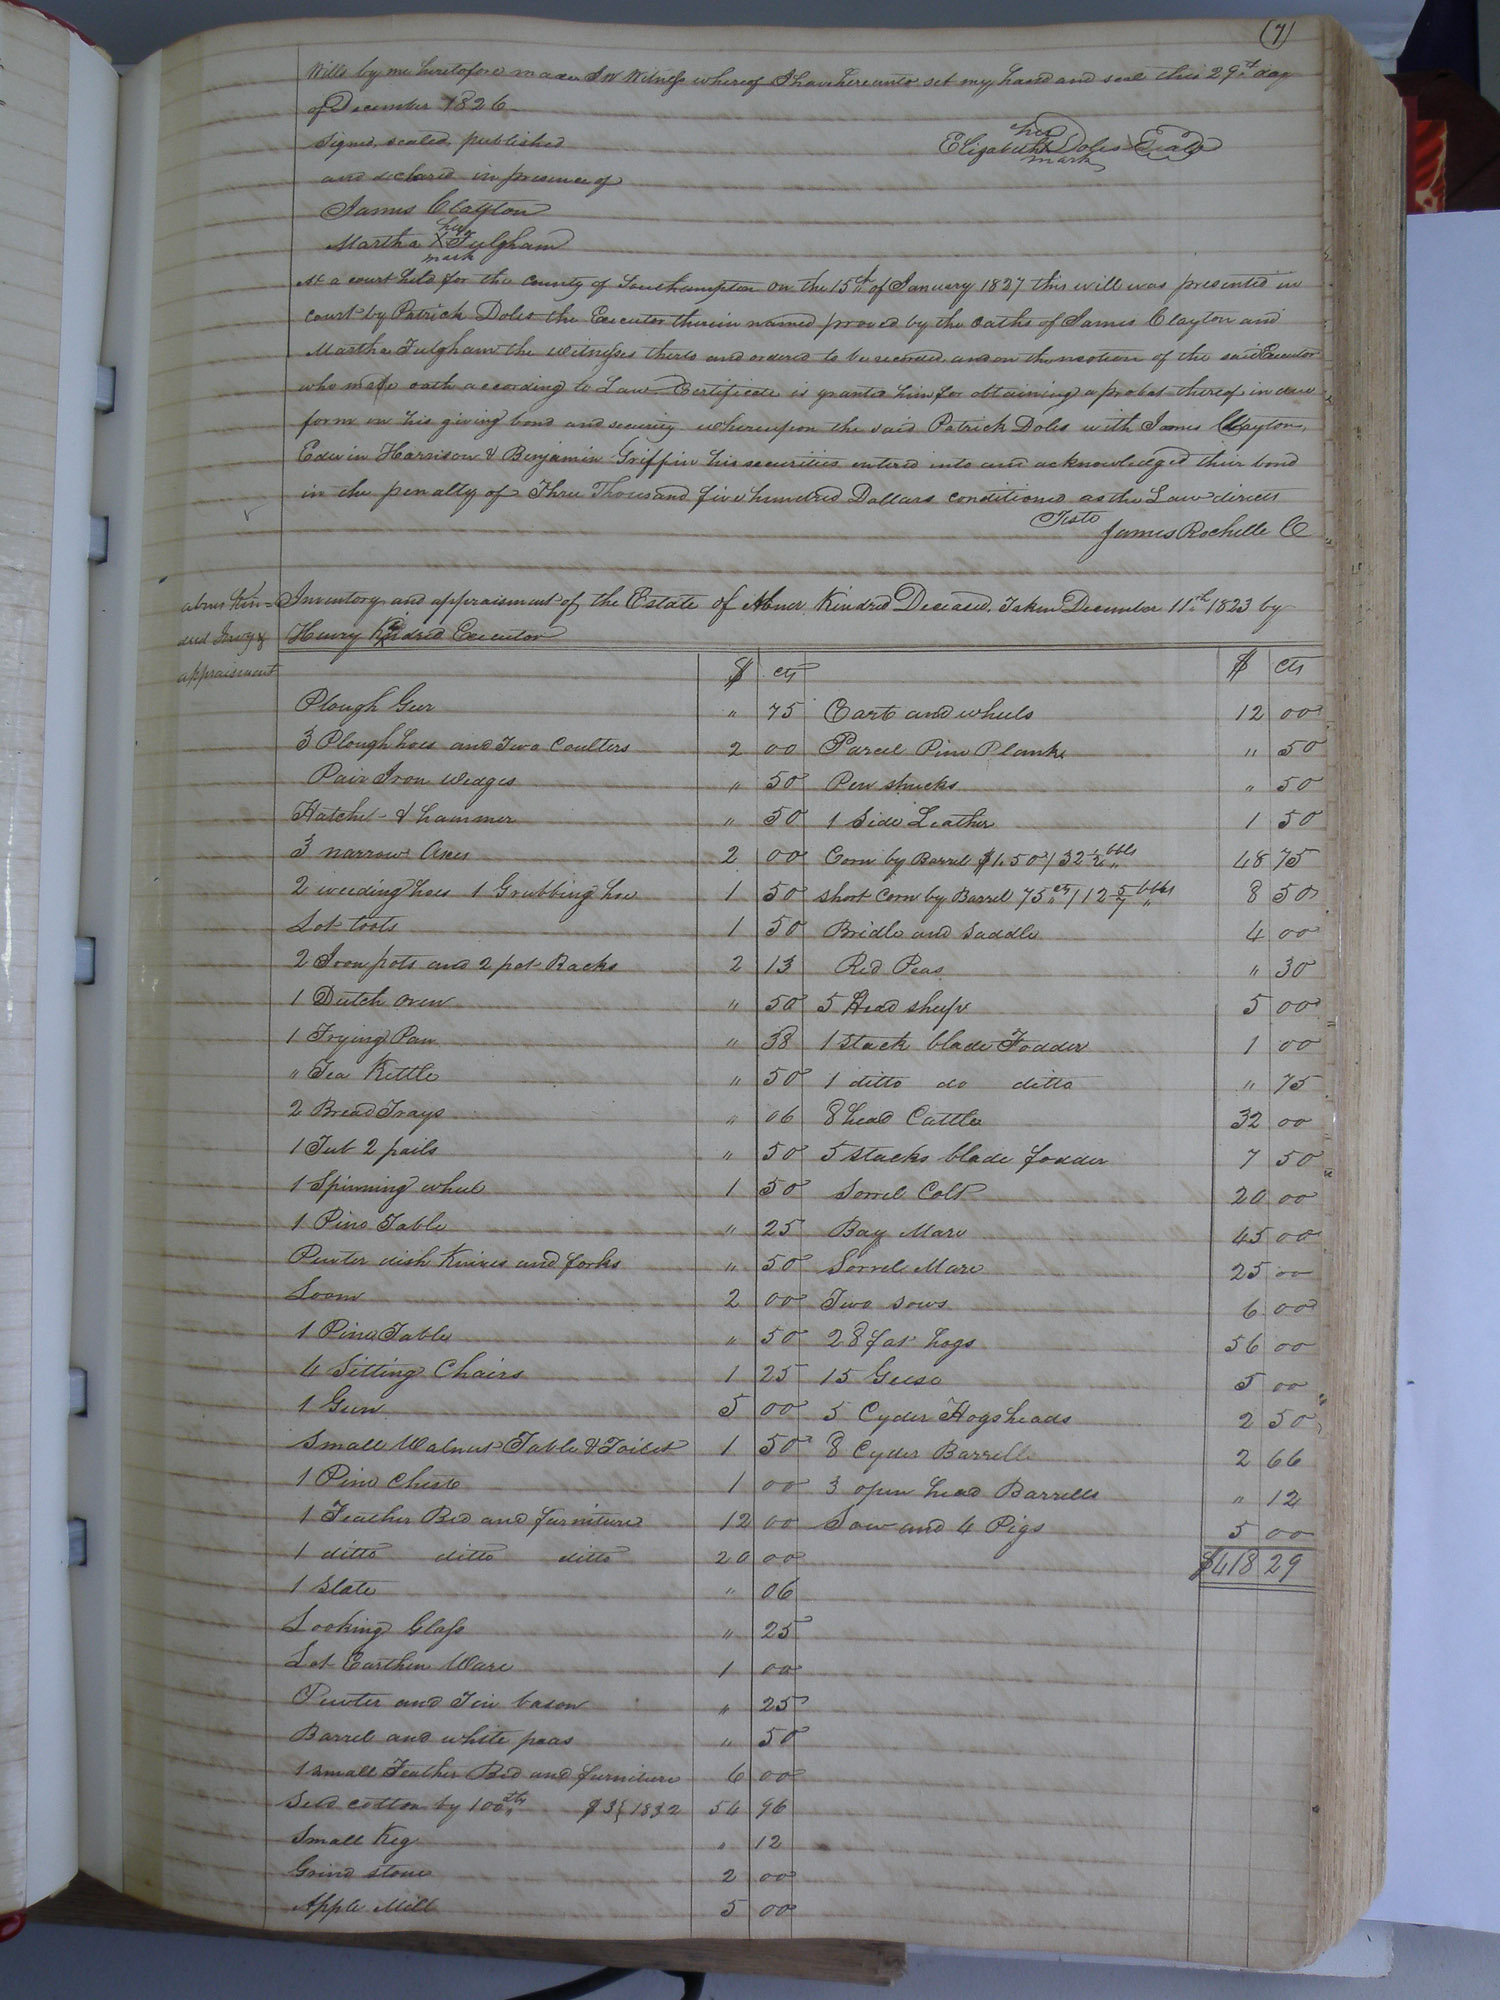 (7)
Wills by me heretofore made In Witness whereof I have hereunto set my hand and seal this 29th day
of December 1826
Signed, sealed, published
her
Elizabeth X Doles Seal
mark
and declared in presence of
James Clayton
her
Martha X Fulgham
mark
At a court held for the County of Southampton on the 15th of January 1827 this will was presented in
court by Patrick Doles the Executor therein named proved by the oaths of James Clayton and
Martha Fulgham the witnesses thereto and ordered to be recorded and on the motion of the said Executor
who made oath according to Law Certificate is granted him for obtaining a probat thereof in due
form on his giving bond and security whereupon the said Patrick Doles with James Clayton,
Edwin Harrison & Benjamin Griffin his securities entered into and acknowledged their bond
in the penalty of Three Thousand five hundred Dollars conditioned as the Law directs
Teste
James Rochelle C
Abner Kin=
dred Invy &
appraisement
Inventory and appraisment of the Estate of Abner Kindred Deceased, Taken December 11th 1823 by
Henry Kindred Executor
$ cts $ cts
Plough Geer " 75 Cart and wheels 12 00
3 Plough hoes and Two Coulters 2 00 Parcel Pine Planks " 50
Pair Iron wedges " 50 Pen shucks " 50
Hatchet & hammer " 50 1 Side Leather 1 50
3 narrow Axes 2 00 Corn by Barrel $1.50 / 32 1/2 bbls 48 75
2 weeding hoes 1 Grubbing hoe 1 50 short Corn by Barrel 75 cts / 12 bbls 8 50
Lot tools 1 50 Bridle and Saddle 4 00
2 Iron pots and 2 pot Racks 2 13 Red Peas " 30
1 Dutch oven " 50 5 Head sheep 5 00
1 Frying Pan " 38 1 Stack blade Fodder 1 00
" Tea Kettle " 50 1 ditto do ditto " 75
2 Bread Trays " 06 8 head Cattle 32 00
1 Tub 2 pails " 50 5 stacks blade fodder 7 50
1 Spinning wheel 1 50 Sorrel Colt 20 00
1 Pine Table " 25 Bay Mare 45 00
Pewter dish Knives and forks " 50 Sorrel Mare 25 00
Loom 2 00 Two sows 6 00
1 Pine Table " 50 28 fat hogs 56 00
4 Sitting Chairs 1 25 15 Geese 5 00
1 Gun 5 00 5 Cyder Hogsheads 2 50
Small Walnut Table & Toilet 1 50 8 Cyder Barrells 2 66
1 Pine Chest 1 00 3 open head Barrells " 12
1 Feather Bed and furniture 12 00 Sow and 4 Pigs 5 00
1 ditto ditto ditto 20 00 $418 29
1 slate " 06
Looking Glass " 25
Lot Earthen Ware 1 00
Pewter and Tin bason " 25
Barrel and white peas " 50
1 small Feather Bed and furniture 6 00
Seed cotton by 100 $3 1832 54 96
Small Keg " 12
Grind stone 2 00
Apple Mill 5 00